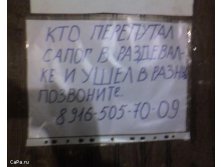 КТО ПЕРЕПУТАЛ
САПОГ В РАЗДЕВАЛ-
КЕ И УШЕЛ В РАЗНЫХ
ПОЗВОНИТЕ.
8 916-505-70-09
CaPa.ru